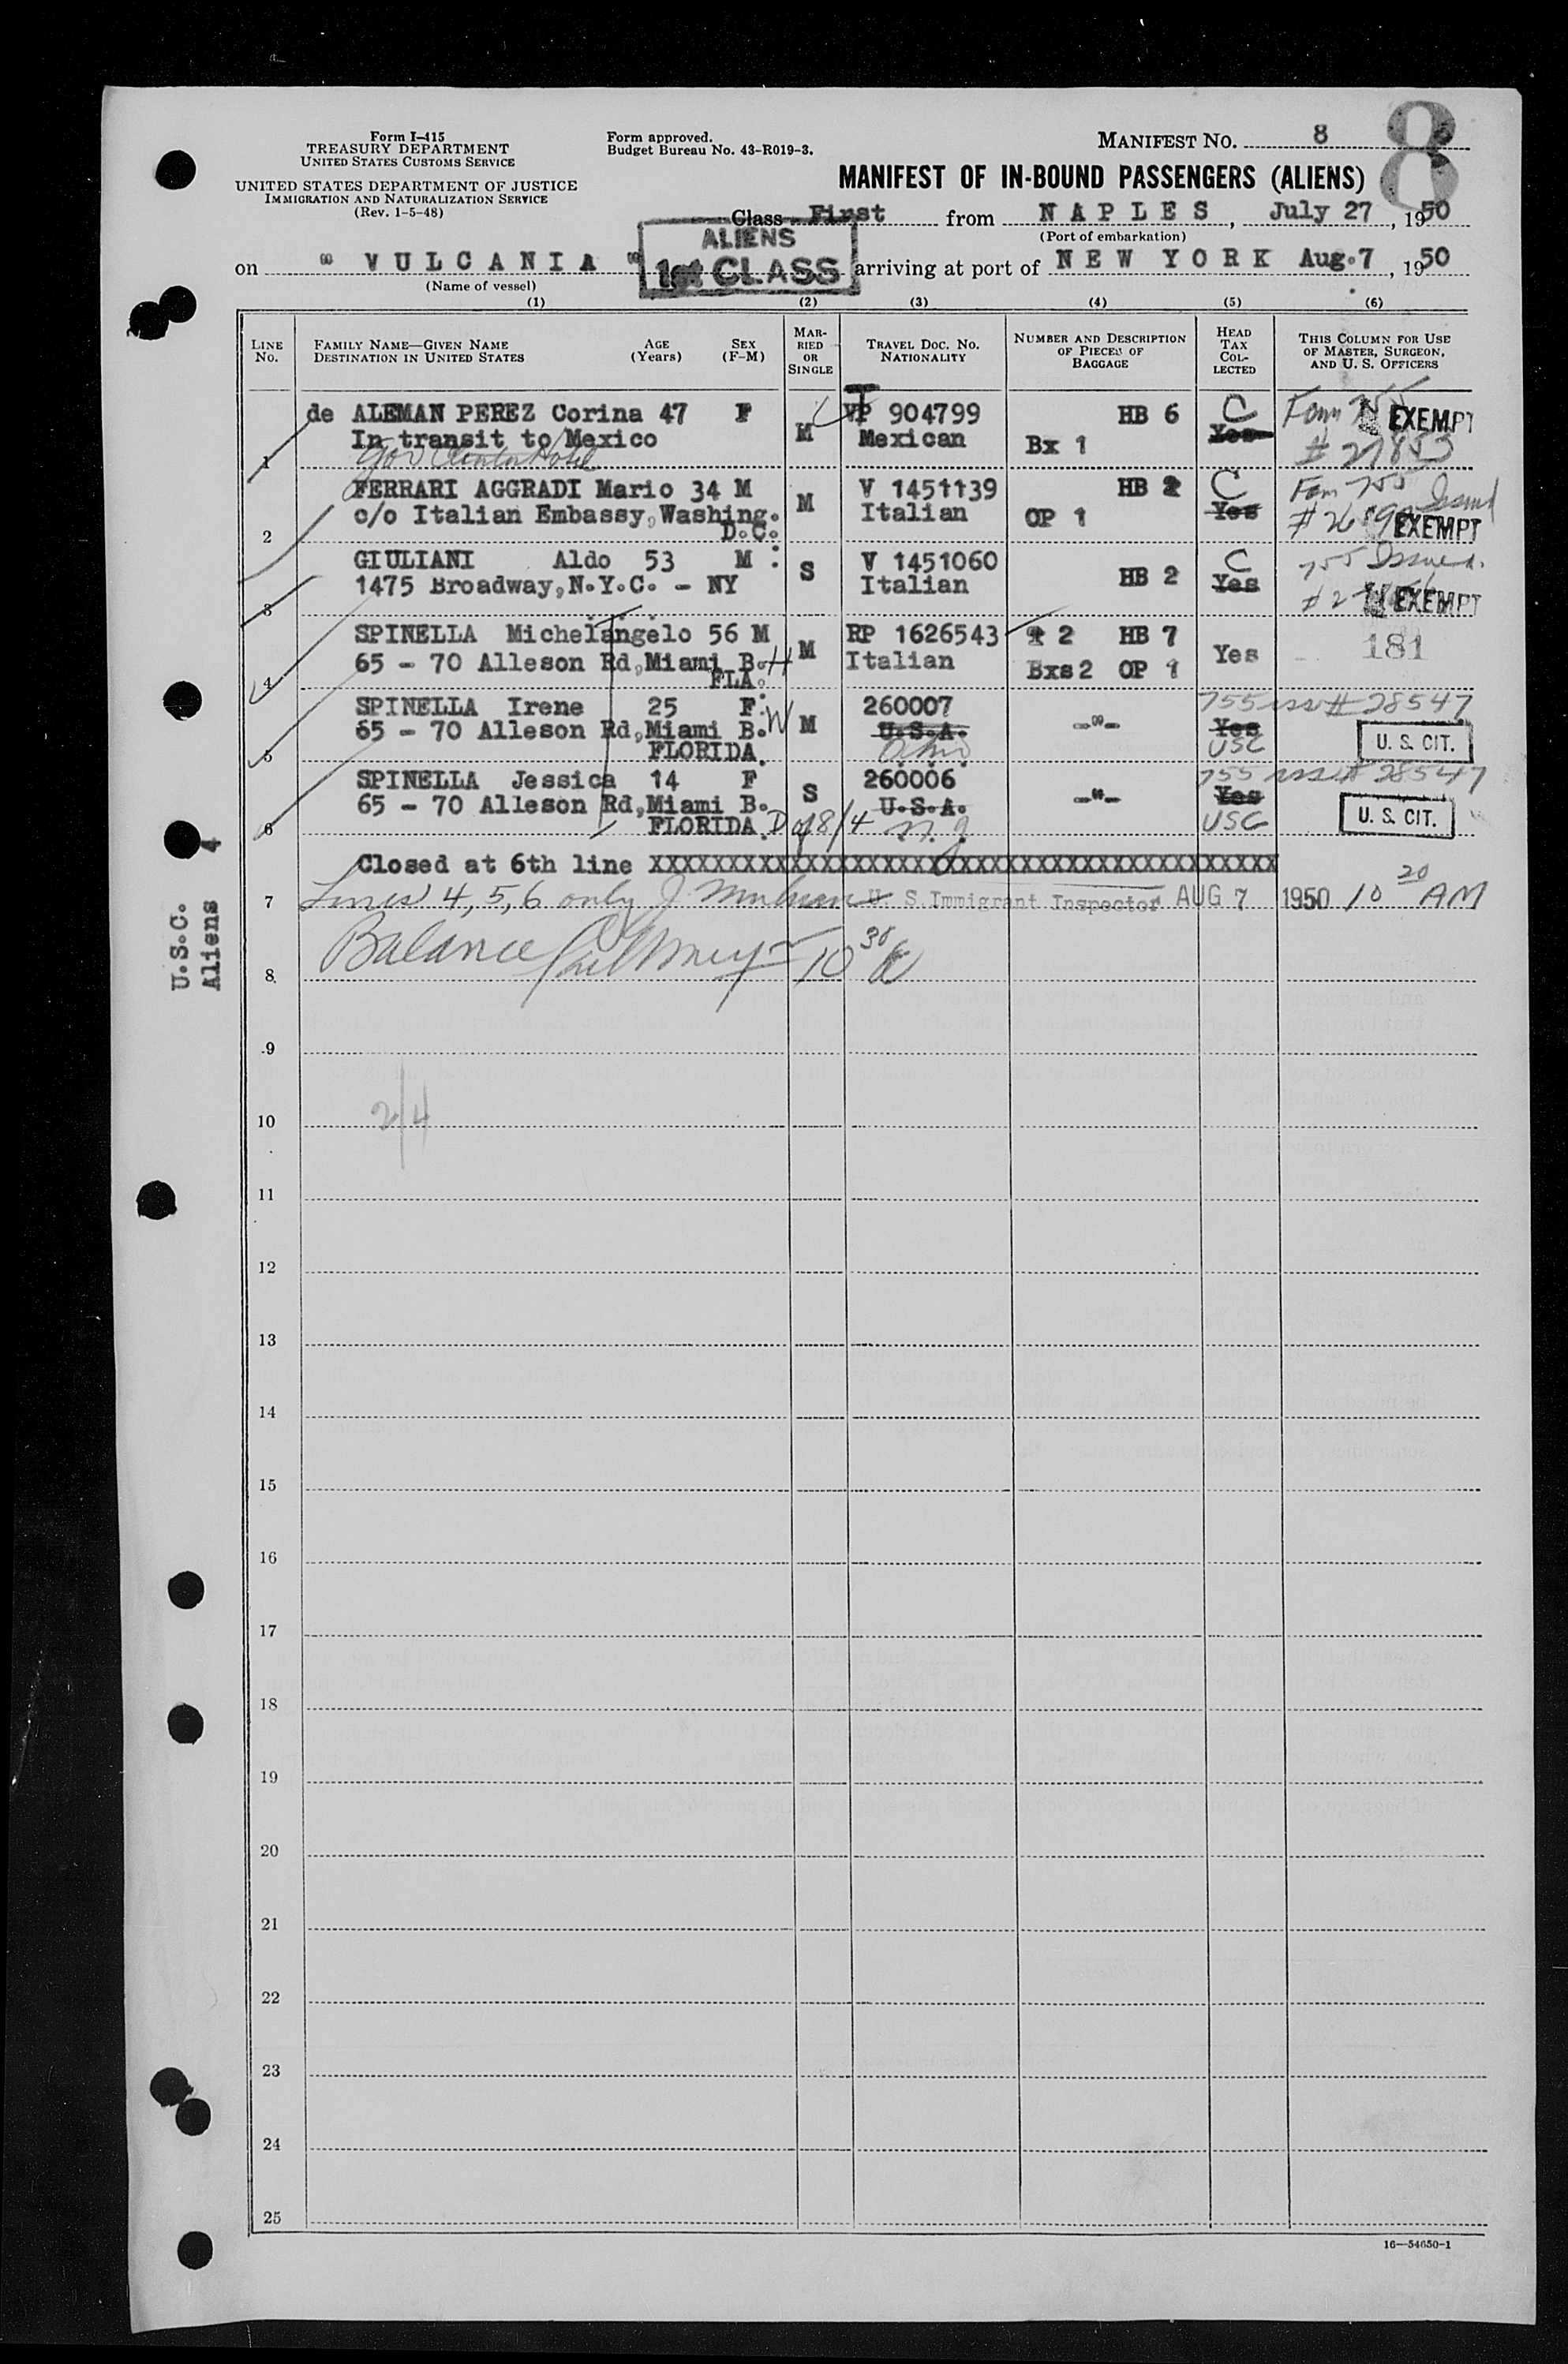 Form I-415
TREASURY DEPARTMENT
UNITED STATES CUSTOMS SERVICE
UNITED STATES DEPARTMENT OF JUSTICE
IMMIGRATION AND NATURALIZATION SERVICE
(Rev. 1-5-48)
Form approved.
Budget Bureau No. 43-R019-3.
MANIFEST NO. 8
8
MANIFEST OF IN-BOUND PASSENGERS (ALIENS)
Class First from NAPLES, July 27, 1950
(Port of embarkation)
ALIENS
1st CLASS
on " VULCANIA " arriving at port of NEW YORK Aug.7, 1950
(Name of vessel)
(1) (2) (3) (4) (5) (6)
LINE No. FAMILY NAME—GIVEN NAME DESTINATION IN UNITED STATES AGE (Years) SEX (F-M) MARRIED OR SINGLE TRAVEL DOC. NO. NATIONALITY NUMBER AND DESCRIPTION OF PIECES OF BAGGAGE HEAD TAX COLLECTED THIS COLUMN FOR USE OF MASTER, SURGEON, AND U. S. OFFICERS
de ALEMAN PEREZ Corina 47 F VP 904799 HB 6 C Form 755 EXEMPT
1 In transit to Mexico M Mexican Bx 1 Yes # 27853
Gov Clinton Hotel
FERRARI AGGRADI Mario 34 M M V 1451139 HB 2 C Form 755 Issued
2 c/o Italian Embassy, Washing. D.C. Italian OP 1 Yes EXEMPT
GIULIANI Aldo 53 M S V 1451060 C 755 Issued.
3 1475 Broadway, N.Y.C. - NY Italian HB 2 Yes EXEMPT
SPINELLA Michelangelo 56 M M RP 1626543 2 HB 7 181
4 65 - 70 Alleson Rd, Miami B. H FLA. Italian Bxs 2 OP 1 Yes
SPINELLA Irene 25 F. W M 260007 755 iss # 28547
5 65 - 70 Alleson Rd, Miami B. U.S.A. -"- Yes
FLORIDA. Ohio USC U. S. CIT.
SPINELLA Jessica 14 F S 260006 755 iss # 28547
6 65 - 70 Alleson Rd, Miami B. U.S.A. -"- Yes
FLORIDA. D of 8/4 N.J. USC U. S. CIT.
Closed at 6th line XXXXXXXXXXXXXXXXXXXXXXXXXXXXXXXXXXXXXXXXXXXXXXXX
7 Lines 4, 5, 6 only U. S. Immigrant Inspector AUG 7 1950 10 20 AM
8 Balance 10 30
9
2/4
10
11
12
13
14
15
16
17
18
19
20
21
22
23
24
25
16—54650-1
U.S.C.
Aliens 4